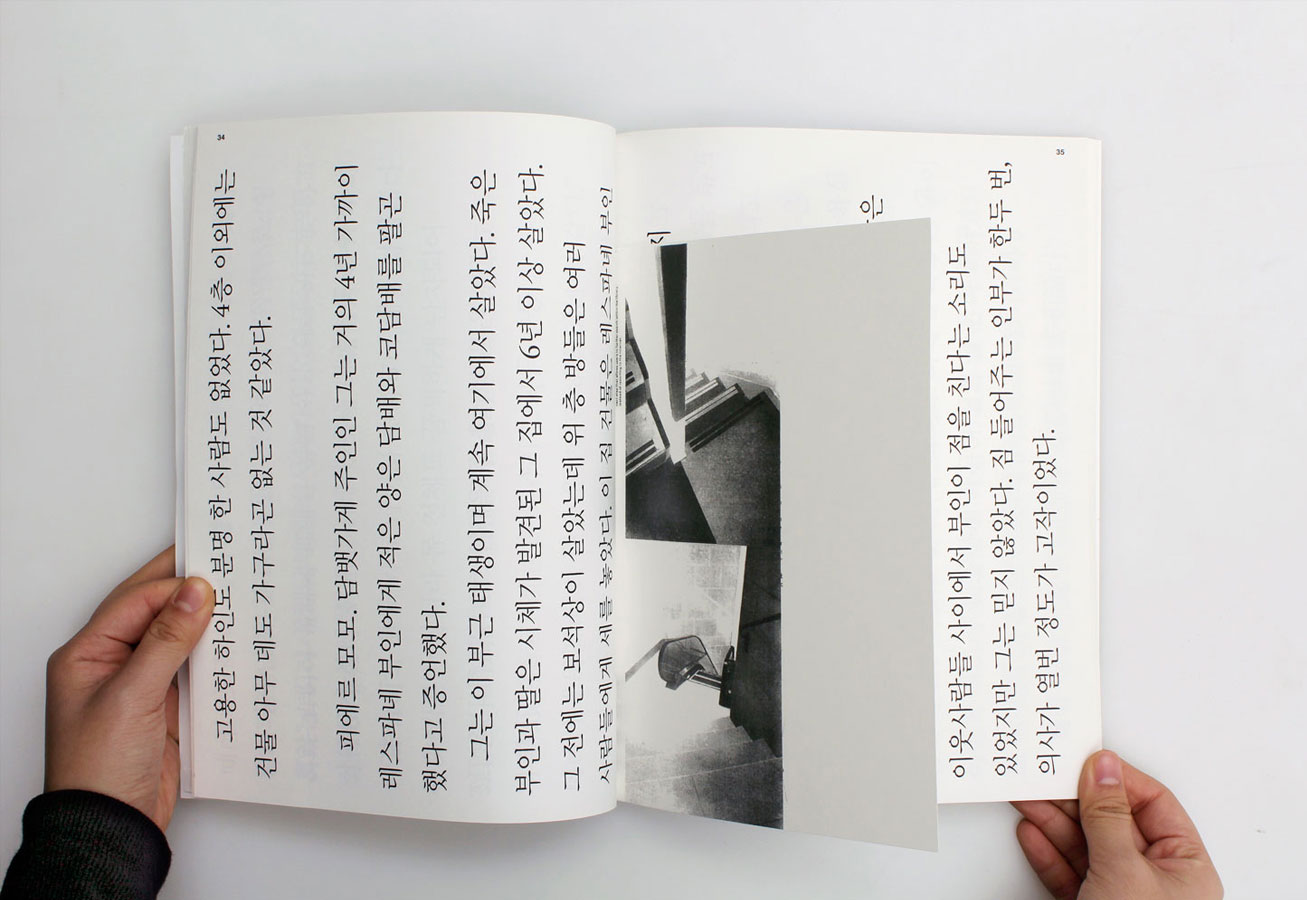 34
고용한 하인도 분명 한 사람도 없었다. 4층 이외에는
건물 아무 데도 가구라곤 없는 것 같았다.
피에르 모모. 담뱃가게 주인인 그는 거의 4년 가까이
레스파녜 부인에게 적은 양은 담배와 코담배를 팔곤
했다고 증언했다.
그는 이 부근 태생이며 계속 여기에서 살았다. 죽은
부인과 딸은 시체가 발견된 그 집에서 6년 이상 살았다.
그 전에는 보석상이 살았는데 위 층 방들은 여러
사람들에게 세를 놓았다. 이 집 건물은 레스파녜 부인
35
지
은
이웃사람들 사이에서 부인이 점을 친다는 소리도
있었지만 그는 믿지 않았다. 짐 들어주는 인부가 한두 번,
의사가 열번 정도가 고작이었다.